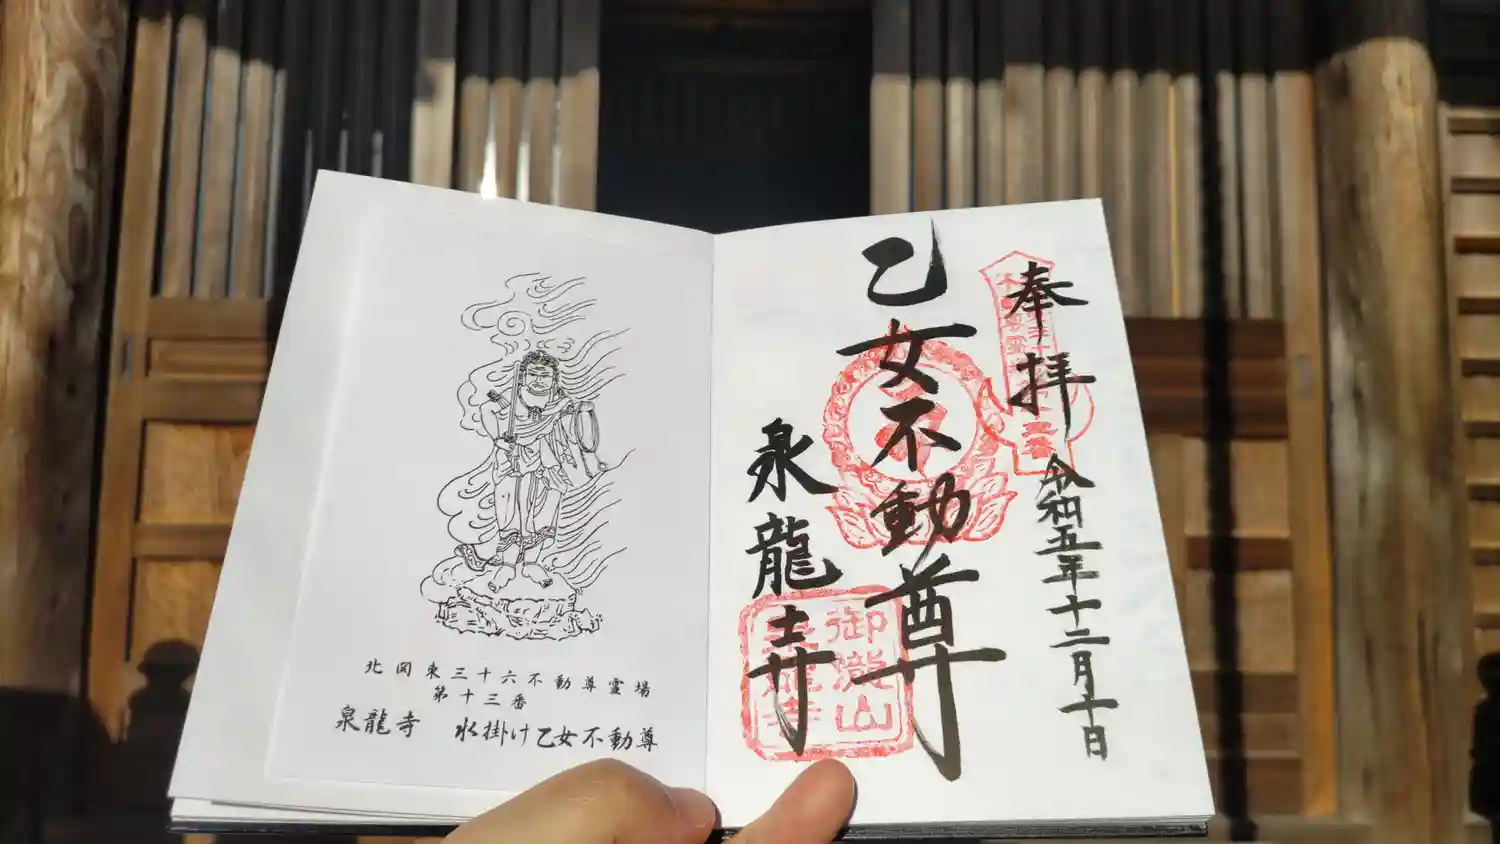 北関東三十六不動尊霊場
第十三番
泉龍寺　水掛け乙女不動尊
奉拝
令和五年十二月十日
乙女不動尊
泉龍寺
御瀧山
泉龍寺